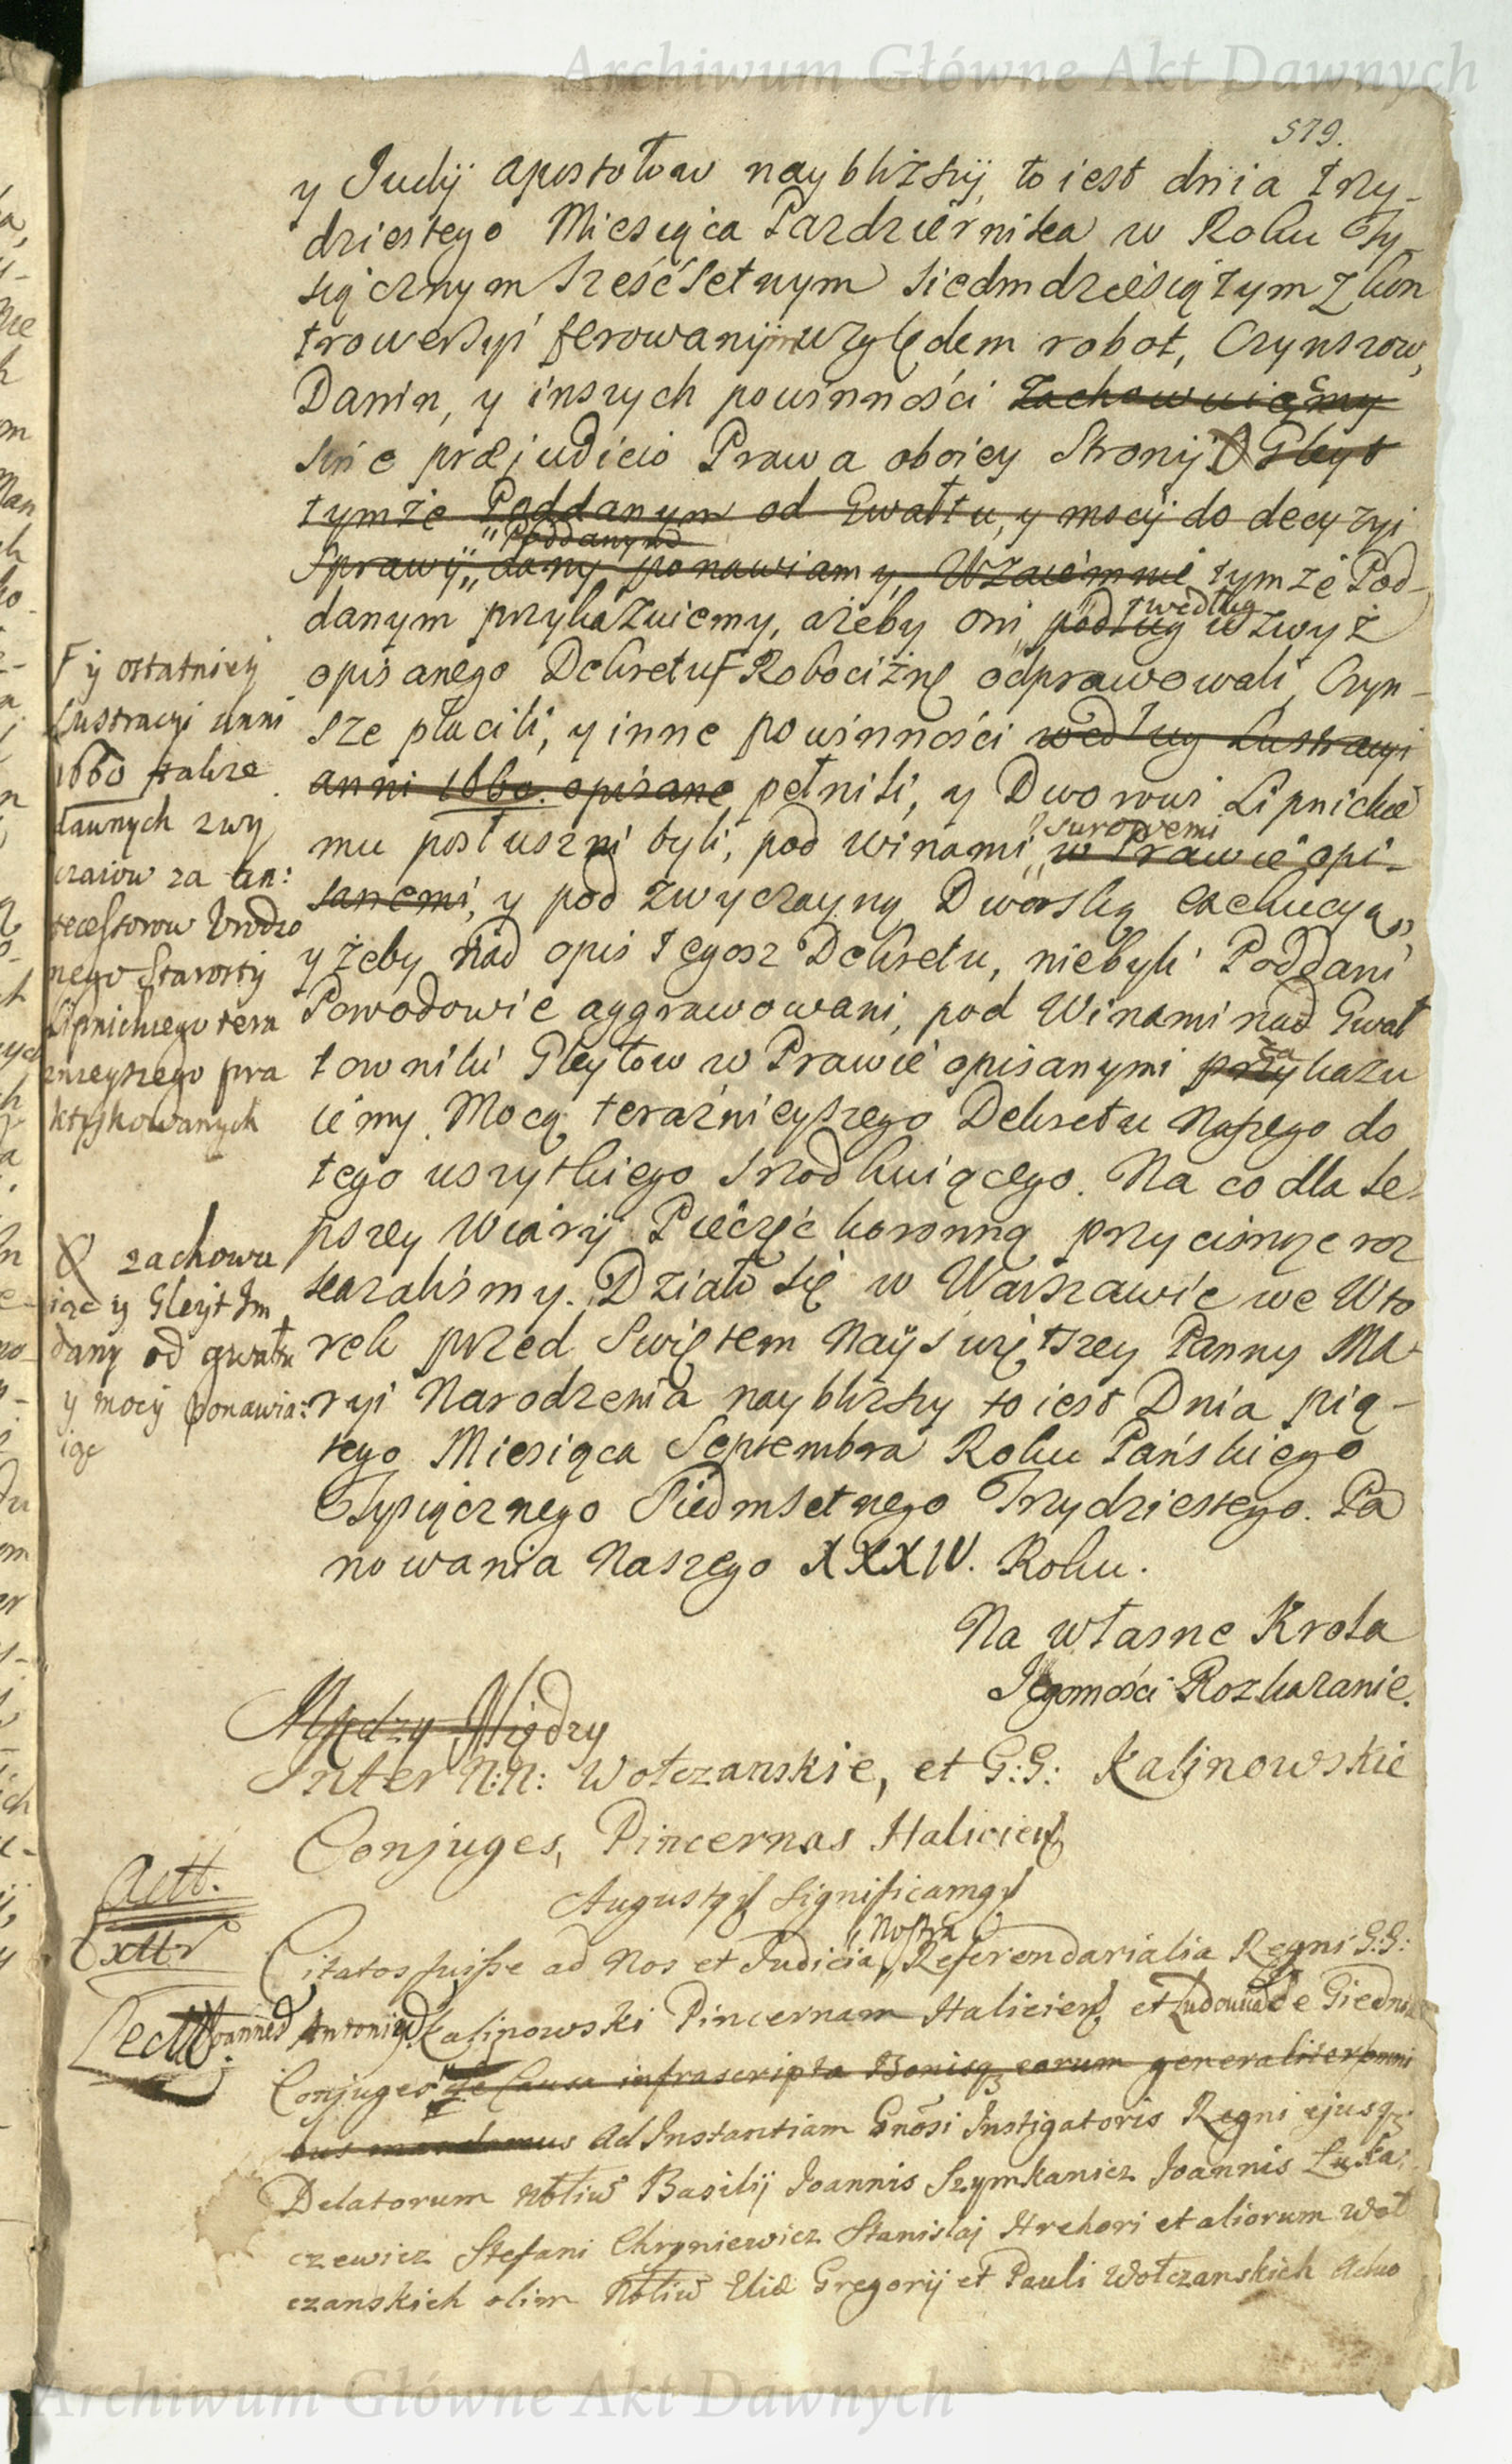 Archiwum Główne Akt Dawnych
579.
y Judy apostołow naybliższy, to iest dnia trzy-
dziestego Miesiąca Pazdziernika w Roku Ty-
siącznym Sześćsetnym siedmdziesiątym z kon
trowersyi ferowanym względem robot, Czynszow,
Danin, y inszych powinności zachowuiemy
sine præjudicio Prawa oboiey Strony Gleyt
tymże Poddanym od Gwałtu, y mocy do decyzyi
Poddanym
Sprawy, dany ponawiamy, Wzaiemnie tymże Pod-
według
danym przykazuiemy, ażeby oni podług wzwyż
opisanego Dekretu Robociznę odprawowali, Czyn-
sze płacili, y inne powinności według Lustracyi
anni 1660. opisane pełnili, y Dworowi Lipnickie
surowemi
mu posłuszni byli, pod winami w Prawie opi-
sanemi, y pod zwyczayną Dworską exekucyą,
y żeby nad opis tegosz Dekretu, niebyli Poddani
Powodowie aggrawowani, pod Winami nad Gwał
za
towniki Gleytow w Prawie opisanymi przykazu
iemy. Mocą teraźnieyszego Dekretu Naszego do
tego wszytkiego srzodkuiącego. Na co dla le-
pszey Wiary Pieczęć koronną przycisnąc roz
kazaliśmy. Działo się w Warszawie we Wto
rek przed Swiętem Nayświętszey Panny Ma-
ryi Narodzenia naybliższy to iest Dnia pią-
tego Miesiąca Septembra Roku Pańskiego
Tysiącznego Siedmsetnego Trzydziestego. Pa
nowania Naszego XXXIV. Roku.
Na własne Krola
Jegomości Rozkazanie.
y ostatniey
Lustracyi anni
1660 także
dawnych zwy
czaiow za an:
tecessorow Urodzo
nego Starosty
Lipnickiego tera
znieyszego pra
ktykowanych
zachowu
iąc y Gleyt Im
dany od gwałtu
y mocy ponawia:
iąc
Między Między
Inter N:N: Wołczanskie, et G:G: Kalinowskie
Conjuges, Pincernas Halicien
Augustus Significamus
Actt.
Extr
Lect
Nostra
Citatos fuisse ad Nos et Judicia Referendarialia Regni G:G:
Joannes Antoniū Kalinowski Pincernam Halicien et Ludovica de Giedni
Conjuges de Causa infrascripta Bonisq earum generaliter omni
bus mandamus ad Instantiam Gnosi Instigatoris Regni ejusq
Delatorum Nbliu Basilij Joannis Szymkanicz Joannis Łuka
czewicz Stefani Chryniewicz Stanislaj Hrehori et aliorum Woł
czanskich olim Nbliu Eliæ Gregorij et Pauli Wołczanskich
Archiwum Główne Akt Dawnych